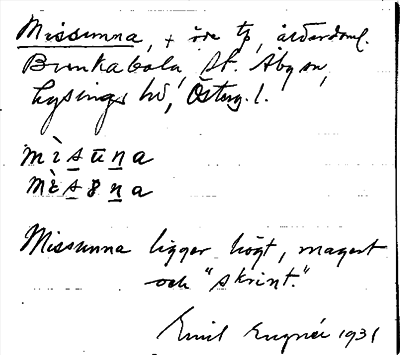 Missunna, + öde tp, ålderdoml.
Brunkabola, St. Åby sn,
Lysings hd, Österg. l.
mìsūna
mìs8na
Missunna ligger högt, magert
och "skrint."
Emil Eugnér 1931